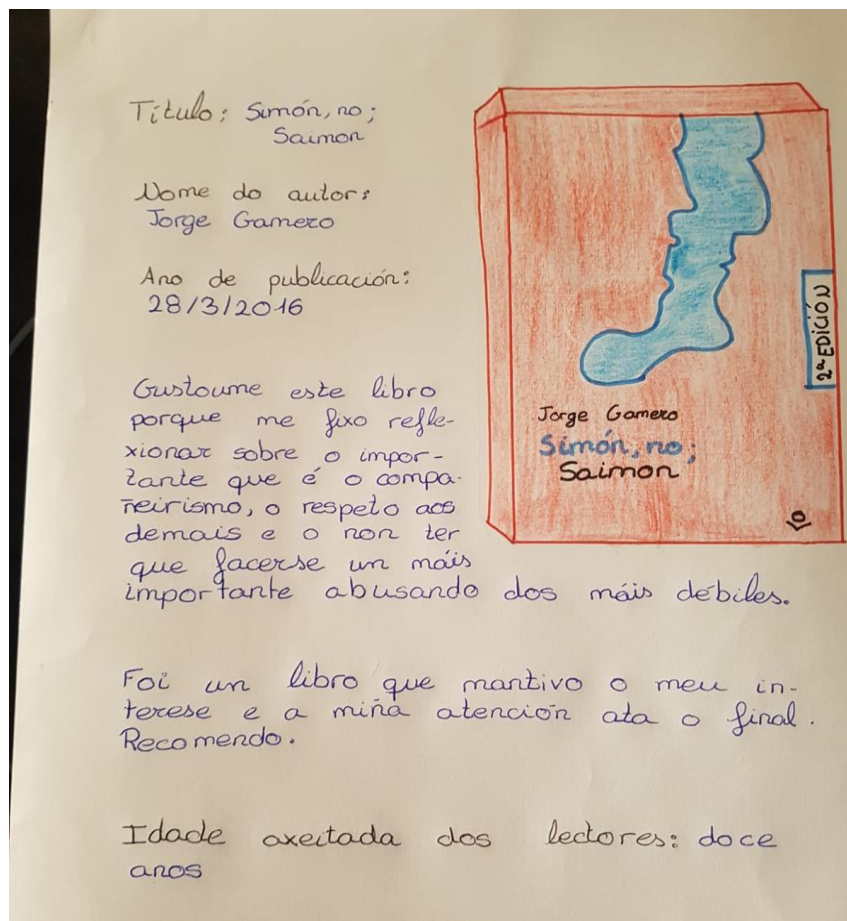 Título: Simón, no;
Saimon
Nome do autor:
Jorge Gamero
Ano de publicación:
28/3/2016
Gustoume este libro
porque me fixo refle-
xionar sobre o impor-
tante que é o compa-
ñeirismo, o respeto aos
demais e o non ter
que facerse un máis
importante abusando dos máis débiles.
Foi un libro que mantivo o meu in-
terese e a miña atención ata o final.
Recomendo.
Idade axeitada dos lectores: doce
anos
2ª EDICIÓN
Jorge Gamero
Simón, no;
Saimon